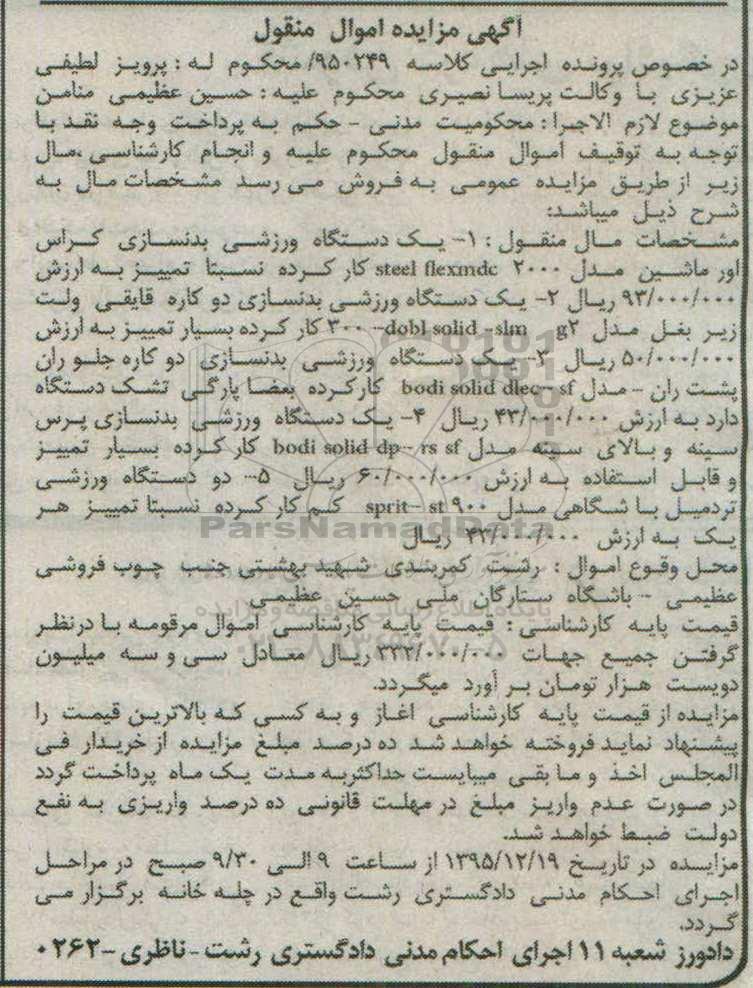 آگهی مزایده اموال منقول
در خصوص پرونده اجرایی کلاسه ۹۵۰۲۴۹/ محکوم له : پرویز لطیفی
عزیزی با وکالت پریسا نصیری محکوم علیه : حسین عظیمی منامن
موضوع لازم الاجرا : محکومیت مدنی - حکم به پرداخت وجه نقد با
توجه به توقیف اموال منقول محکوم علیه و انجام کارشناسی ،مال
زیر از طریق مزایده عمومی به فروش می رسد مشخصات مال به
شرح ذیل میباشد:
مشخصات مال منقول : ۱- یک دستگاه ورزشی بدنسازی کراس
اور ماشین مدل ۲۰۰۰ steel flexmdc کار کرده نسبتا تمییز به ارزش
۹۳/۰۰۰/۰۰۰ ریال ۲- یک دستگاه ورزشی بدنسازی دو کاره قایقی ولت
زیر بغل مدل g۲ dobl solid -slm- ۳۰۰ کار کرده بسیار تمییز به ارزش
۵۰/۰۰۰/۰۰۰ ریال ۳- یک دستگاه ورزشی بدنسازی دو کاره جلو ران
پشت ران - مدل bodi solid dlec- sf کارکرده بعضا پارگی تشک دستگاه
دارد به ارزش ۴۳/۰۰۰/۰۰۰ ریال ۴- یک دستگاه ورزشی بدنسازی پرس
سینه و بالای سینه مدل bodi solid dp- rs sf کار کرده بسیار تمییز
و قابل استفاده به ارزش ۶۰/۰۰۰/۰۰۰ ریال ۵- دو دستگاه ورزشی
تردمیل باشگاهی مدل ۹۰۰ sprit- st کم کار کرده نسبتا تمییز هر
یک به ارزش ۴۳/۰۰۰/۰۰۰ ریال
ParsNamadData
محل وقوع اموال : رشت کمربندی شهید بهشتی جنب چوب فروشی
عظیمی - باشگاه ستارگان ملی حسین عظیمی
قیمت پایه کارشناسی : قیمت پایه کارشناسی اموال مرقومه با درنظر
گرفتن جمیع جهات ۳۳۲/۰۰۰/۰۰۰ ریال معادل سی و سه میلیون
دویست هزار تومان بر آورد میگردد.
مزایده از قیمت پایه کارشناسی اغاز و به کسی که بالاترین قیمت را
پیشنهاد نماید فروخته خواهد شد ده درصد مبلغ مزایده از خریدار فی
المجلس اخذ و ما بقی میبایست حداکثربه مدت یک ماه پرداخت گردد
در صورت عدم واریز مبلغ در مهلت قانونی ده درصد واریزی به نفع
دولت ضبط خواهد شد.
مزایده در تاریخ ۱۳۹۵/۱۲/۱۹ از ساعت ۹ الی ۹/۳۰ صبح در مراحل
اجرای احکام مدنی دادگستری رشت واقع در چله خانه برگزار می
گردد.
دادورز شعبه ۱۱ اجرای احکام مدنی دادگستری رشت - ناظری - ۰۲۶۲